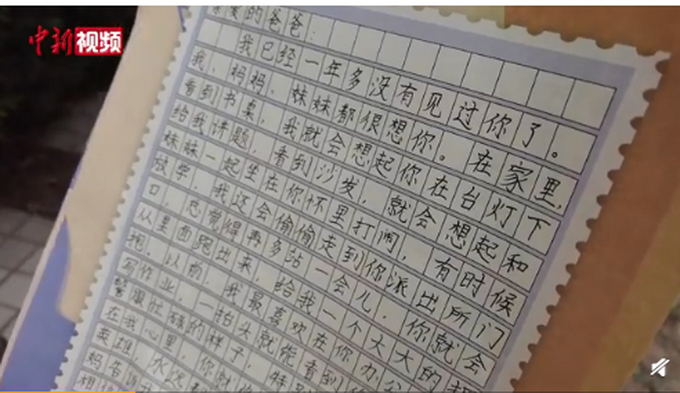 中新视频
亲爱的爸爸：
我已经一年多没有见过你了。
我、妈妈、妹妹都很想你。在家里，
看到书桌，我就会想起你在台灯下
给我讲题，看到沙发，就会想起和
妹妹一起坐在你怀里打闹，有时候
放学，我还会偷偷走到你派出所门
口，总觉得再多站一会儿，你就会
从里面跑出来，给我一个大大的拥
抱。以前，我最喜欢在你办公
写作业，一抬头就能看到你
警服忙碌的样子，特
在我心里，你就
英雄，永远
妈告诉我